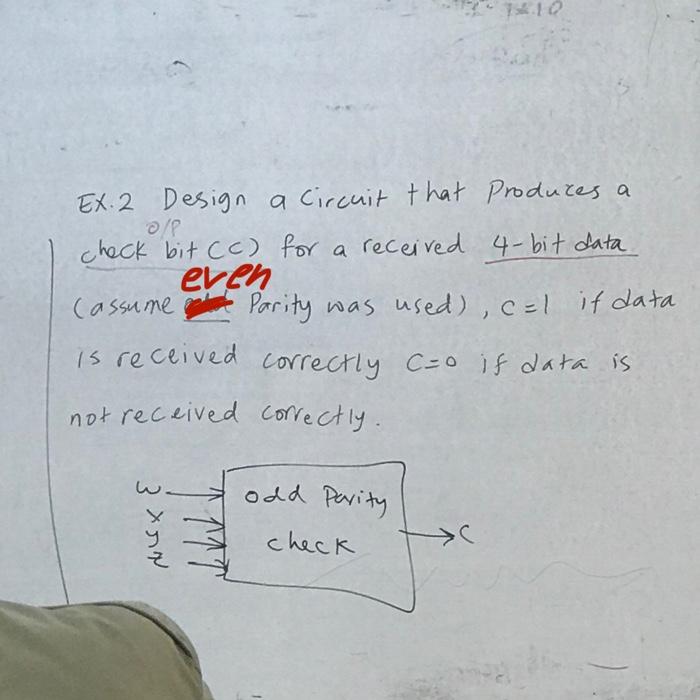 EX.2 Design a circuit that produces a
O/P
check bit (C) for a received 4-bit data
even
(assume parity was used), C=1 if data
is received correctly C=0 if data is
not received correctly.
W
X
Y
Z
odd Parity
check
C